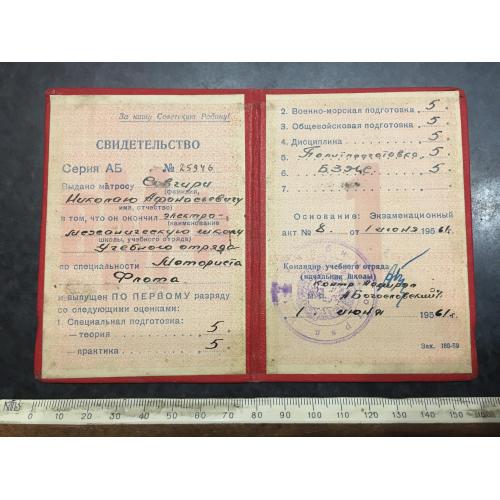 За нашу Советскую Родину!
СВИДЕТЕЛЬСТВО
Серия АБ № 25946
Выдано матросу Савгири
(фамилия,
Николаю Афонасьевичу
имя, отчество)
в том, что он окончил Электро-
(наименование
механическую школу
школы, учебного отряда)
Учебного отряда
по специальности Моториста
Флота
и выпущен ПО ПЕРВОМУ разряду
со следующими оценками:
1. Специальная подготовка:
—теория 5
—практика 5
2. Военно-морская подготовка 5
3. Общевойсковая подготовка 5
4. Дисциплина 5
5. Политподготовка 5
6. БЗЖС 5
7.
Основание: Экзаменационный
акт № 8. от 1 июня 1961г.
Командир учебного отряда
(начальник школы)
Контр-Адмирал
М.П. А Богословский
1 июня 1961г.
Зак. 180-59
0 10 20 30 40 50 60 70 80 90 100 110 120 130 140 150